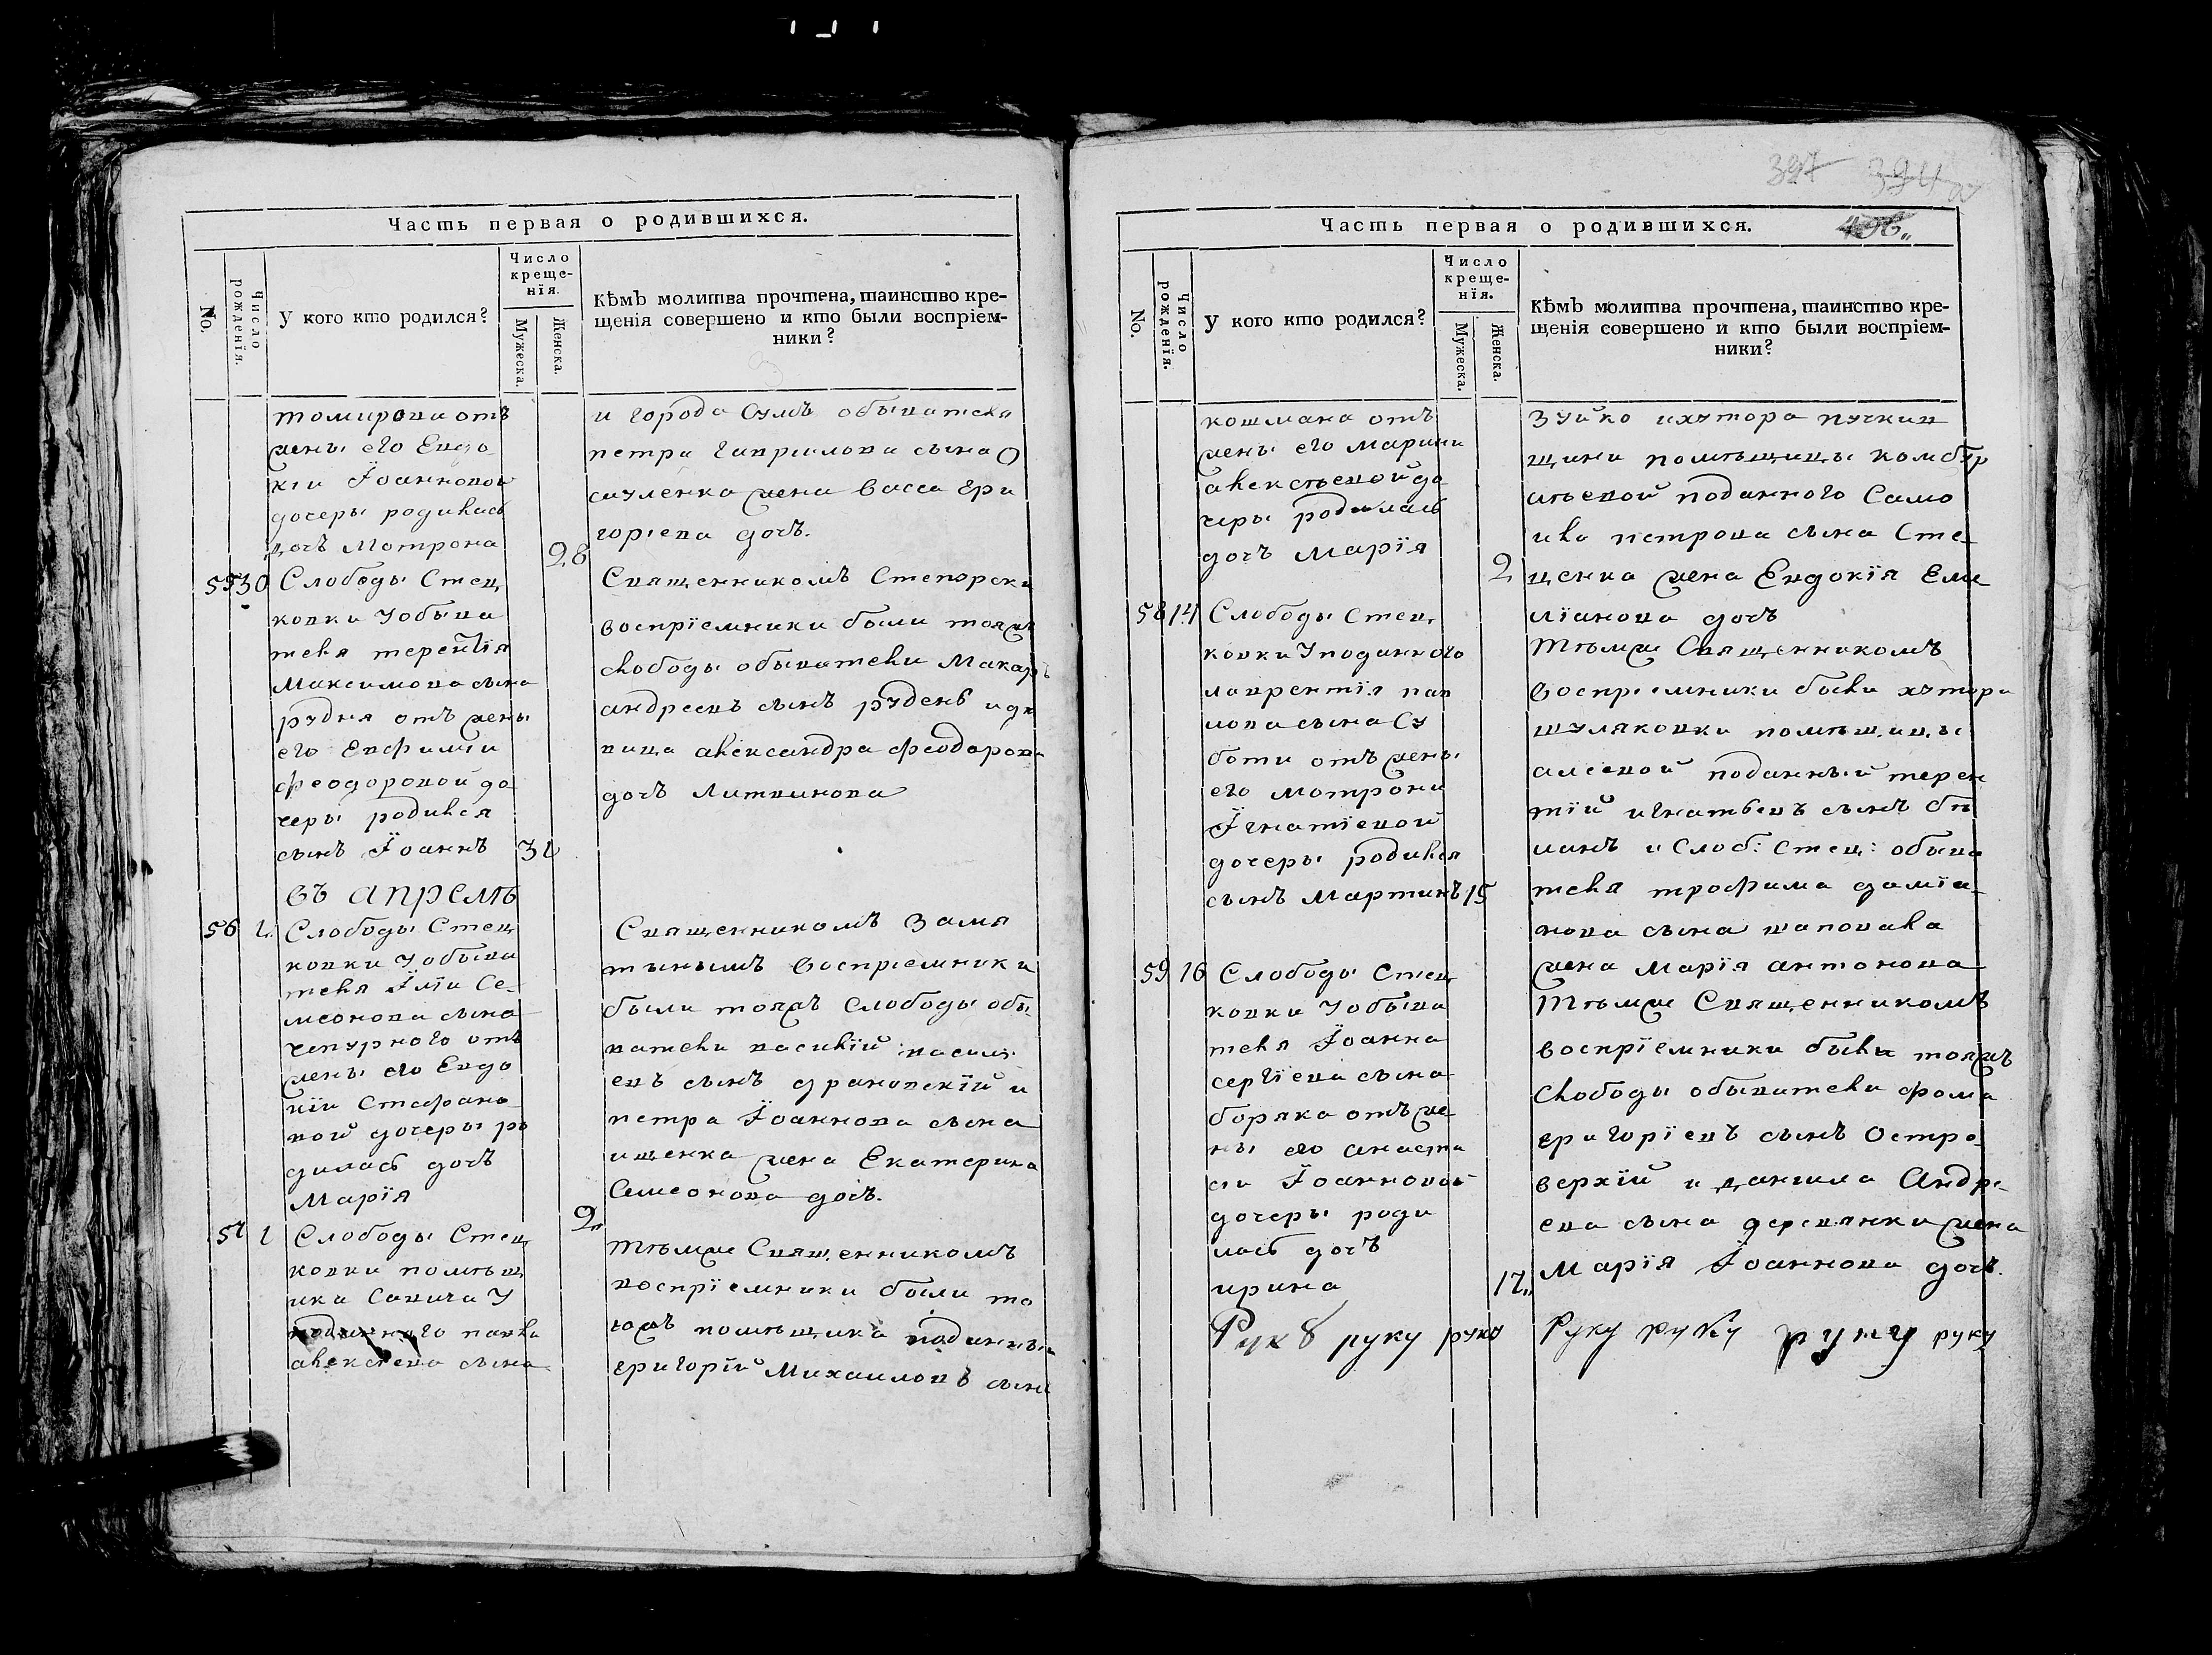 Часть первая о родившихся.
No.
Число рожденїя.
У кого кто родился?
Число
креще-
нїя.
Мужеска.
Женска.
Кѣмъ молитва прочтена, таинство кре-
щенія совершено и кто были воспріем-
ники?
томирова отъ
жены его Евдо
кіи Їоанновой
дочеры родилась
дочъ Мотрона
28
и города Сумъ обывателя
петра гавриилова сына О
сауленка жена васса гри
горіева дочъ.
55 30 Слободы Стец
ковки У обыва
теля терентїя
Максимова сына
рудня отъ жены
его Евфиміи
феодоровой до
черы родился
сынъ Їоаннъ 31
Священникомъ Степорски
воспрїемники были тояжъ
слободы обыватели Макаръ
андреевъ сынъ рудень и дѣ
вица александра феодорова
дочъ Литвинова
въ апрелѣ
56 1. Слободы Стец
ковки У обыва
теля Їліи Се
меонова сына
чепурного отъ
жены его Евдо
кїи Стефано
вой дочеры ро
дилась дочъ
Марїя
2„
Священникомъ Замя
тынымъ воспріемники
были тояжъ Слободы обы
ватели василїй василь
евъ сынъ драновскїй и
петра Їоаннова сына
ищенка жена Екатерина
Семеонова дочъ.
57 1 Слободы Стец
ковки помѣщ
ика Савича У
подданного павла
алексеева сына
Тѣмже Священникомъ
воспрїемники были то
гожъ помѣщика подданны
григорїй Михаиловъ сынъ
397
Часть первая о родившихся.
No.
Число рожденїя.
У кого кто родился?
Число
креще-
нїя.
Мужеска.
Женска.
Кѣмъ молитва прочтена, таинство кре-
щенія совершено и кто были воспріем-
ники?
кошмана отъ
жены его Марини
алексѣевой до
черы родилась
дочъ Марїя
2
Зуйко и хутора пучкин
щини помѣщицы комбур
лѣевой подданного Само
ила петрова сына Сте
ценка жена Евдокїя Еме
лїанова дочъ
58 14 Слободы Стец
ковки У поданного
лаврентїя пав
лова сына Су
боти отъ жены
его Мотрони
Їгнатїевой
дочеры родился
сынъ Мартинъ 15
Тѣмже Священникомъ
воспріемники были хутора
шуляковки помѣщицы
поданный терен
тїй игнатьевъ сынъ бѣ
ланъ и Слоб: Стец: обыва
теля трофима дамїа
нова сына шаповала
жена Марїя антонова
59 16 Слободы Стец
ковки У обыва
теля Їоанна
сергїева сына
боряка отъ же
ны его анаста
сіи Їоанновой
дочеры роди
лась дочъ
ирина
17„
Тѣмже Священникомъ
воспрїемники были тояжъ
слободы обыватели фома
григорїевъ сынъ Остро
верхїй и данила Андре
ева сына деревянки жена
Марїя Їоаннова дочъ.
руку руку руку руку руку руку